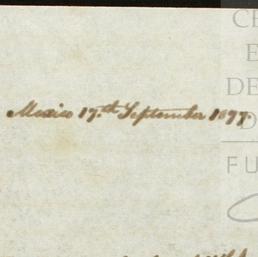 Mexico 17th September 1897.
CE
E
DE
D
FU